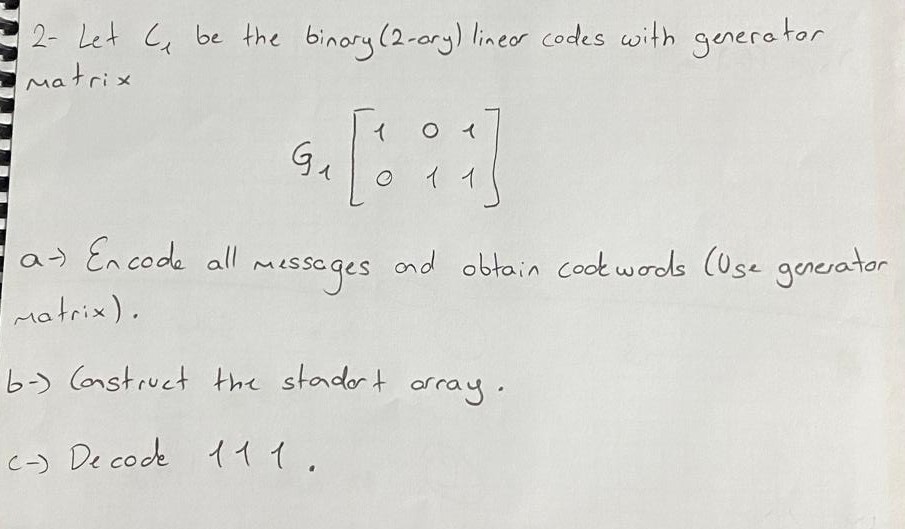 2- Let C₁ be the binary (2-ary) linear codes with generator
matrix
G₁ [1 0 1
0 1 1]
a-) Encode all messages and obtain cookwords (Use generator
matrix).
b-) Construct the standort array.
c-) Decode 111.